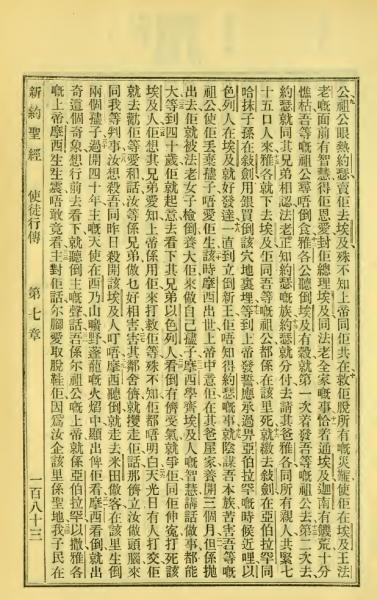 公祖公眼熱約瑟賣佢去埃及殊不知上帝同佢共在救佢脫所有嘅災難使佢在埃及王法
老嘅面前有智慧得佢恩愛封佢總理埃及同法老全家嘅事恰若通埃及迦南有饑荒十分
憔枯吾等嘅祖公尋唔倒食雅各公聽倒埃及有穀就第一次若發吾等嘅祖公去第二次去
約瑟就同其兄弟相認法老正知約瑟嘅族約瑟就分付去請其爸雅各同所有親人共緊七
十五口人來雅各就下去埃及佢同吾等嘅祖公都係在該里死就繳去敍劍在亞伯拉罕同
哈抹子孫在敍劍用銀買倒該穴地裏埋等到上帝發誓應承過畀亞伯拉罕嘅時候近哩以
色列人在埃及就好發達一直到立倒新王佢唔知得約瑟嘅事就陰謀吾本族苦害吾等嘅
祖公使佢丟棄孺子唔愛佢生該時摩西出世上帝中意佢在其爸屋家養開三個月但係拋
出去佢就被法老女子檢倒養大佢來做自己孺子摩西學齊埃及人嘅智慧講話做事都能
大等到四十歲佢就起意去看下其兄弟以色列人看倒有儕受氣就爭佢同佢伸寃打死該
埃及人佢想其兄弟愛知上帝係用佢來打救佢等殊不知佢都唔明白天光日有人打交佢
就去勸佢等愛和話汝等係兄弟做乜好相害害其鄰舍儕就攪走佢話那儕立汝做頭腦來
同我等判事汝想殺吾同昨日殺開該埃及人叮唔摩西聽倒就走去米田做客在該里生倒
兩個孺子過開四十年主嘅天使在西乃山曠野蓬蘢嘅火焰中顯出俾佢看摩西看倒就出
奇這個奇象想行前去看下就聽倒主嘅聲話吾係尔祖公嘅上帝就係亞伯拉罕以撒雅各
嘅上帝摩西生生震唔敢竟看主對佢話尔腳愛取脫鞋佢因為汝企該里係聖地我子民在
新約聖經 使徒行傳 第七章 一百八十三